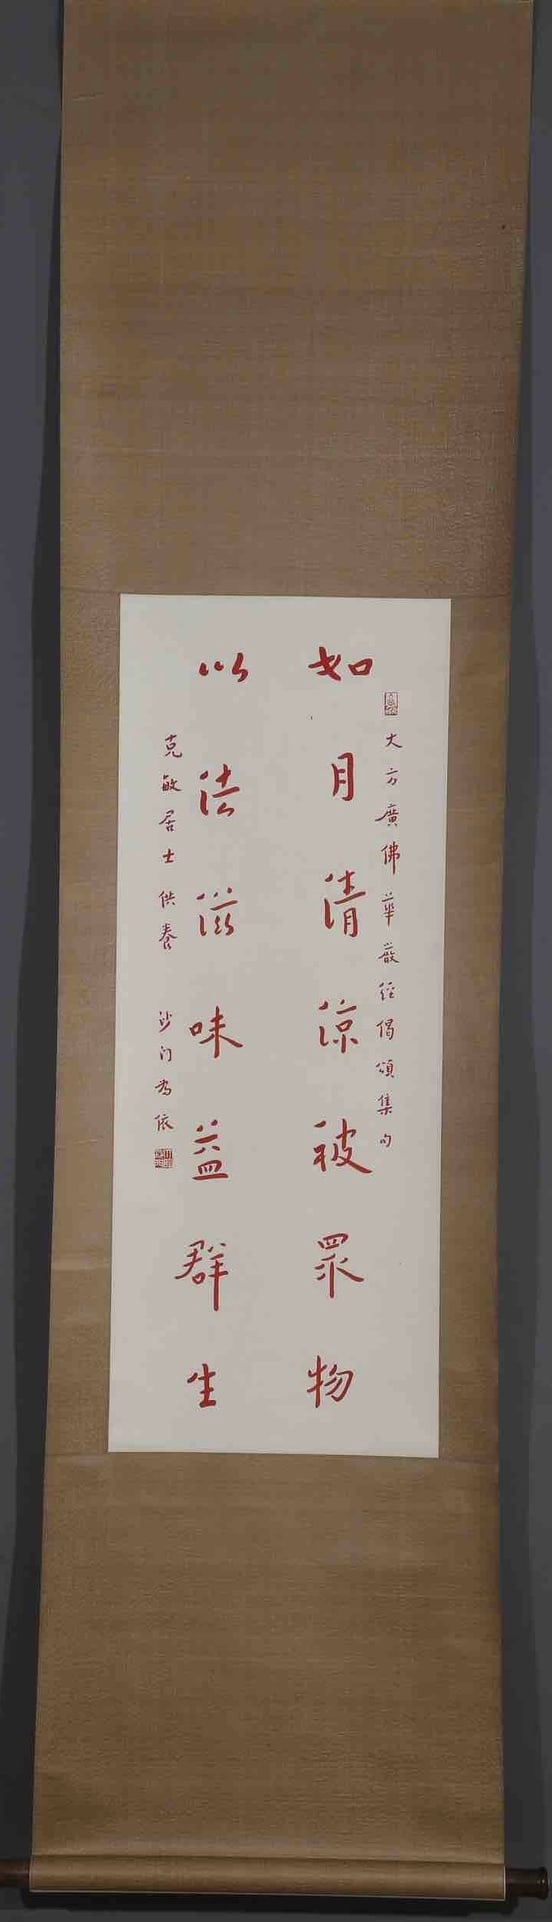 大方廣佛華嚴經偈頌集句
如月清涼被眾物
以法滋味益群生
克敏居士供養 沙门為依